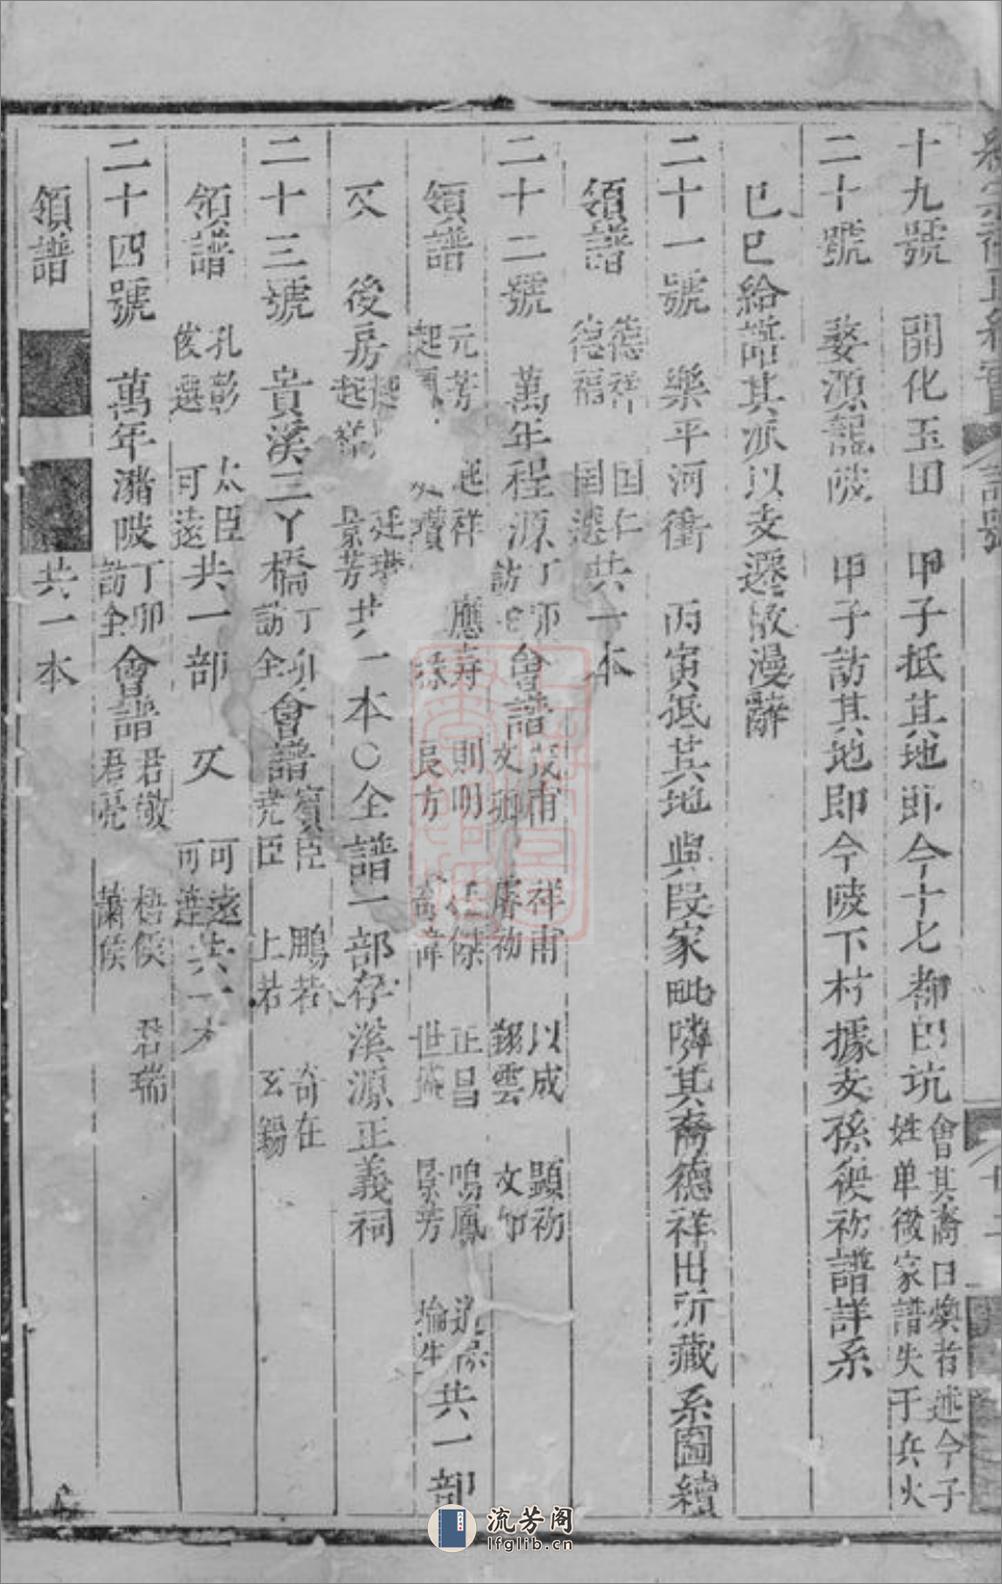 十九號 開化玉田 甲子抵其地即今十七都白坑 會其裔曰煥者述今子姓单微家譜失于兵火
二十號 婺源龍陂 甲子訪其地即今陂下村據支孫
譜詳系
已巳給誥其派以支遷故漫辭
二十一號 樂平河衝 丙寅抵其地與段家毗隣其裔德祥出所藏系圖續
領譜 德祥 德福 国仁 国選 共一本
二十二號 萬年程源 丁卯訪 會譜 茂甫 文卿 祥甫 以成 翔雲 顯初
領譜 元芳 起祥 應壽 則明 良方 任傑 正昌 世 鳴鳳 景芳 共一部
又 後房 起祥 景芳 共一本○全譜一部存溪源正義祠
二十三號 貴溪三丫橋 丁卯訪全 會譜 賓臣 堯臣 鵬若 上若 奇在 玄錫
領譜 孔彰 俊選 太臣 可遠 共一部 又 可遠 可達 共一本
二十四號 萬年潘陂 丁卯訪全 會譜 君敬 君亮 梧侯 蘭侯 君瑞
領譜 共一本
流芳阁
lfglib.cn